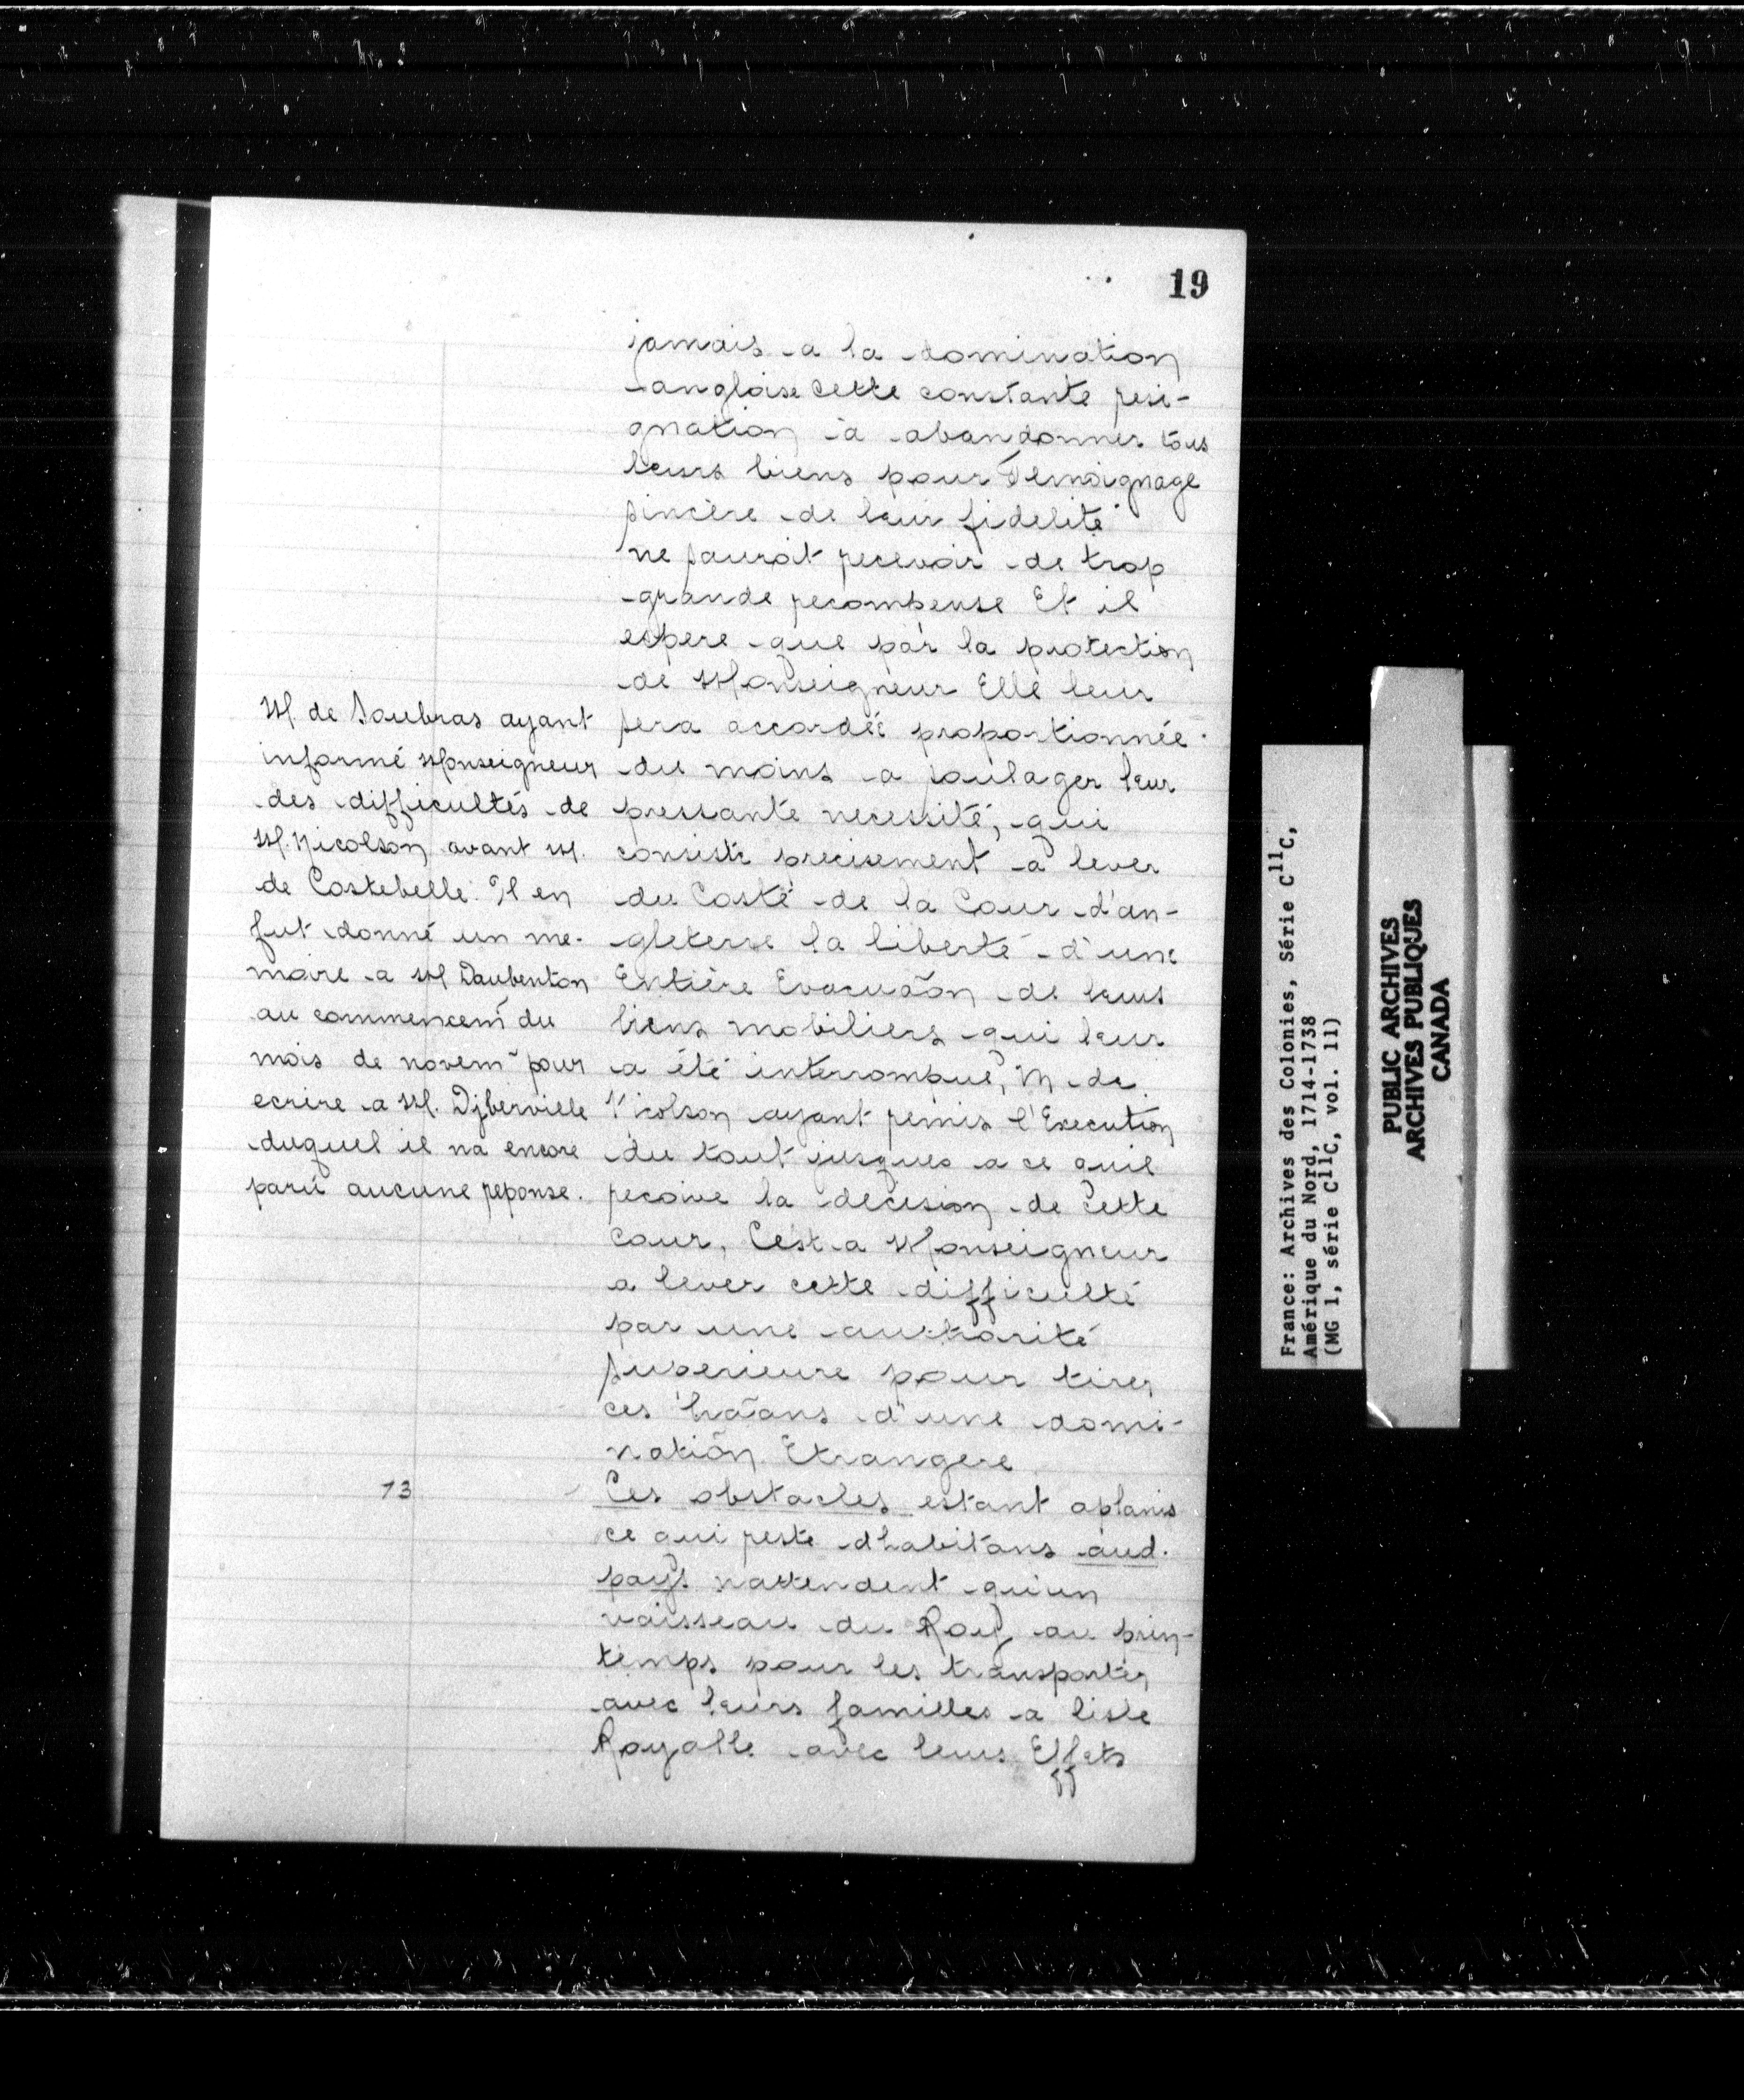 19
jamais a la domination
angloise cette constante resi-
gnation à abandonner tous
leurs biens pour Temoignage
sincère de leur fidelité
ne sauroit recevoir de trop
grande recompense Et il
espere que par la protection
de Monseigneur Elle leur
sera accordée proportionnée
du moins a soulager leur
pressante necessité, qui
consiste precisement a lever
du Costé de la Cour d'an-
gleterre la liberté d'une
Entière Evacuãon de leurs
biens mobiliers qui leur
a été interrompue, M de
Nicolson ayant remis l'Execution
du tout jusques a ce quil
recoive la decision de Cette
Cour, C'est a Monseigneur
a lever cette difficulté
par une authorité
superieure pour tirer
ces hãans d'une domi-
natiõn Etrangere
Ces obstacles estant aplanis
ce qui reste d'habitans aud.
pays nattendent qu'un
vaisseau du Roy au prin-
temps pour les transporter
avec leurs familles a lisle
Royalle avec leurs Effets
M. de Soubras ayant
informé Monseigneur
des difficultés de
M. Nicolson avant M.
de Costebelle. Il en
fut donné un me-
moire a M Daubenton
au commencem̃ du
mois de novem̃ pour
ecrire a M. Djberville
duquel il na encore
parû aucune reponse.
13
France: Archives des Colonies, Série C11C,
Amérique du Nord, 1714-1738
(MG 1, série C11C, vol. 11)
PUBLIC ARCHIVES
ARCHIVES PUBLIQUES
CANADA